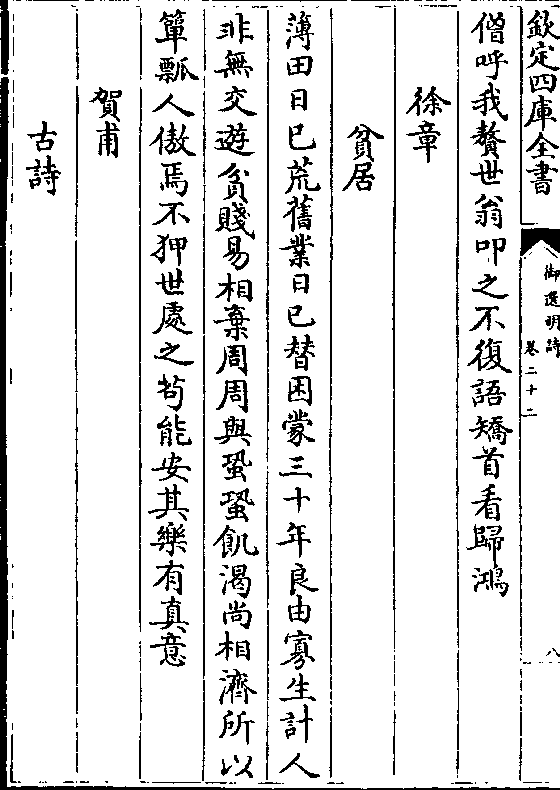 欽定四庫全書
御選明詩
卷二十二
八
僧呼我贅世翁叩之不復語矯首看歸鴻
徐章
貧居
薄田日已荒舊業日已替困蒙三十年良由寡生計人
非無交遊貧賤易相棄周周與蛩蛩飢渴尚相濟所以
簞瓢人傲焉不狎世處之茍能安其樂有真意
賀甫
古詩